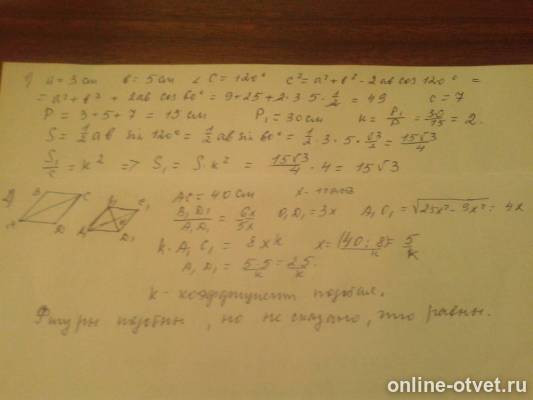 1) a = 3 см b = 5 см ∠C = 120° c² = a² + b² - 2ab cos 120° =
= a² + b² + 2ab cos 60° = 9 + 25 + 2·3·5·1/2 = 49 c = 7
P = 3 + 5 + 7 = 15 см P₁ = 30 см k = P₁/P = 30/15 = 2.
S = 1/2 ab sin 120° = 1/2 ab sin 60° = 1/2 · 3 · 5 · √3/2 = 15√3/4
S₁/S = k² => S₁ = S·k² = 15√3/4 · 4 = 15√3
2) B C A D B₁ C₁ A₁ D₁
AC = 40 см
B₁D₁/A₁D₁ = 6x/5x O₁D₁ = 3x A₁C₁ = √25x² - 9x² = 4x
k·A₁C₁ = 8xk x = (40:8)/k = 5/k
A₁D₁ = 5·5/k = 25/k.
k - коэффициент подобия.
Фигуры подобны, но не сказано, что равны.
online-otvet.ru